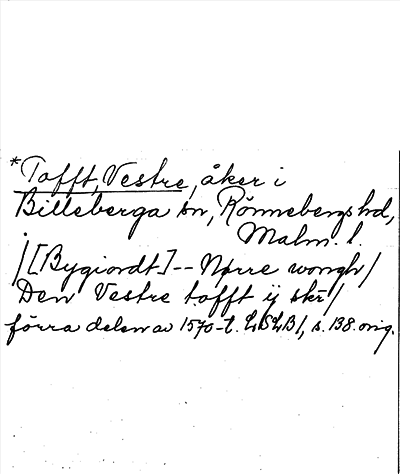 *Tofft, Vestre, åker i
Billeberga sn, Rönnebergs hd,
Malm. l.
/[Bygiordt]-- Nørre wongh/
Den Vestre tofft ij skr̄/
förra delen av 1570-t. LSLB1, s. 138. orig.